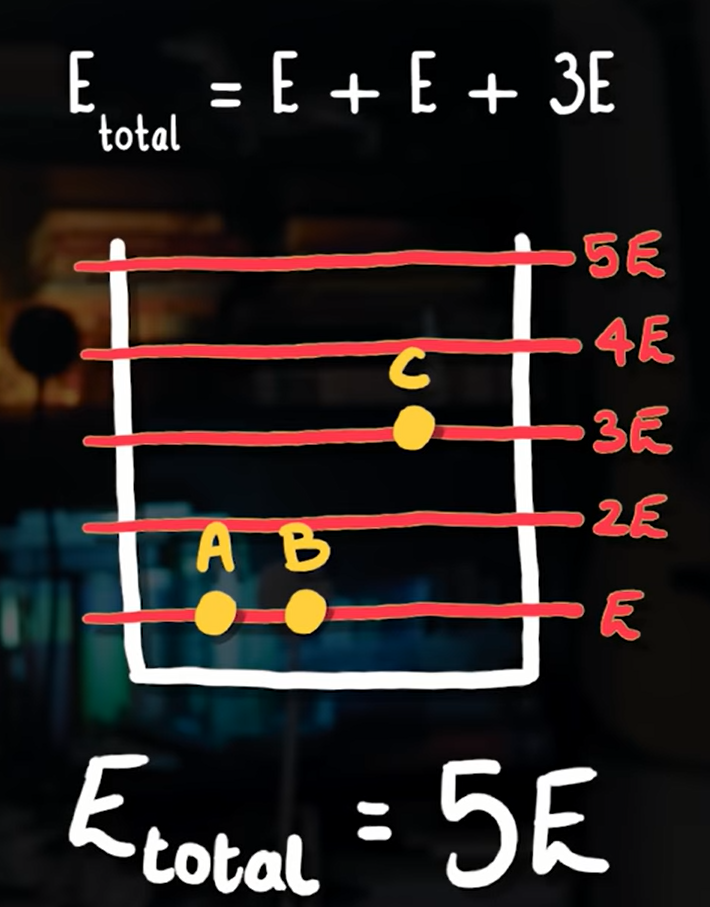 E total = E + E + 3E
5E
4E
C
3E
2E
A B
E
E total = 5E